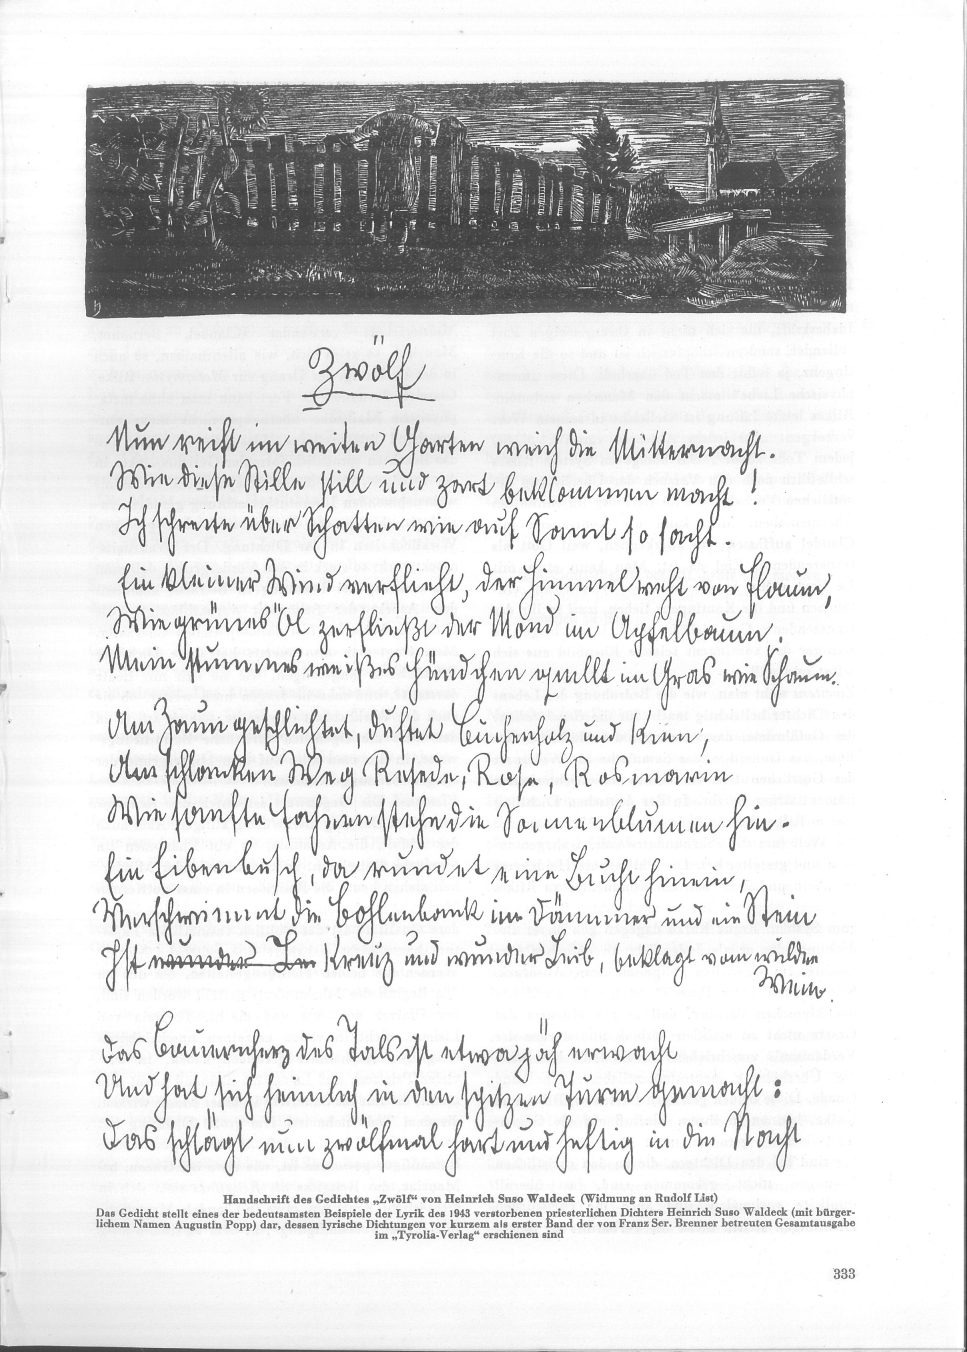 Zwölf
Nun reift im weiten Garten weich die Mitternacht.
Wie diese Stille still und zart beklommen macht!
Ich schreite über Schatten wie auf Samt so sacht.
Ein kleiner Wind verflieht, der Himmel weht von Flaum,
Wie grünes Öl zerfließt der Mond im Apfelbaum.
Mein stummes weißes Hündchen quillt im Gras wie Schaum.
Am Zaun geschlichtet, duftet Buchenholz und Kien,
Am schlanken Weg Resede, Rose, Rosmarin
Wie sanfte Fahnen stehn die Sonnenblumen hin.
Ein Eibenbusch, da rundet eine Bucht hinein,
Verschwimmt die Bohlenbank im Dämmer und ein Stein
Ist wunder Le Kreuz und wunder Leib, beklagt vom wilden
Wein.
Das Bauernherz des Tals ist etwa jäh erwacht
Und hat sich heimlich in den spitzen Turm gemacht:
Das schlägt nun zwölfmal hart und heftig in die Nacht
Handschrift des Gedichtes „Zwölf“ von Heinrich Suso Waldeck (Widmung an Rudolf List)
Das Gedicht stellt eines der bedeutsamsten Beispiele der Lyrik des 1943 verstorbenen priesterlichen Dichters Heinrich Suso Waldeck (mit bürger-
lichem Namen Augustin Popp) dar, dessen lyrische Dichtungen vor kurzem als erster Band der von Franz Ser. Brenner betreuten Gesamtausgabe
im „Tyrolia-Verlag“ erschienen sind
333